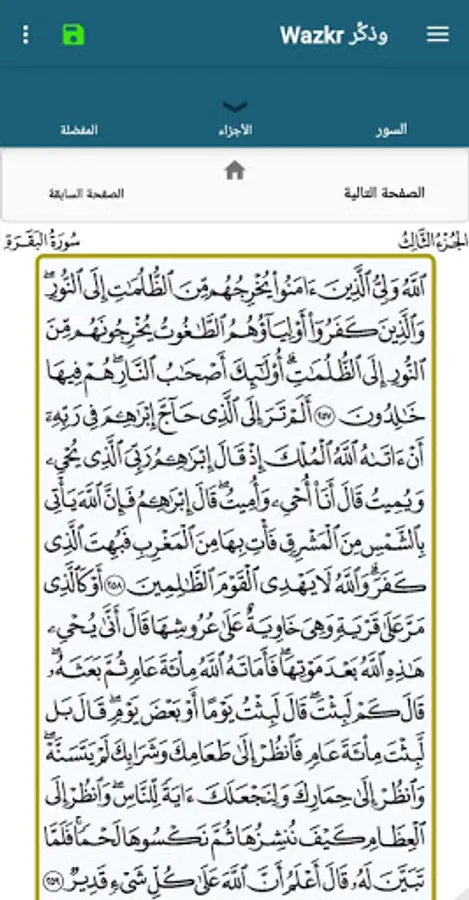 وذكّر Wazkr
السور
الأجزاء
المفضلة
الصفحة التالية
الصفحة السابقة
الجُزْءُ الثَّالِثُ
سُورَةُ البَقَرَةِ
ٱللَّهُ وَلِيُّ ٱلَّذِينَ ءَامَنُوا۟ يُخْرِجُهُم مِّنَ ٱلظُّلُمَٰتِ إِلَى ٱلنُّورِۖ
وَٱلَّذِينَ كَفَرُوٓا۟ أَوْلِيَآؤُهُمُ ٱلطَّٰغُوتُ يُخْرِجُونَهُم مِّنَ
ٱلنُّورِ إِلَى ٱلظُّلُمَٰتِۗ أُو۟لَٰٓئِكَ أَصْحَٰبُ ٱلنَّارِۖ هُمْ فِيهَا
خَٰلِدُونَ ٢٥٧ أَلَمْ تَرَ إِلَى ٱلَّذِى حَآجَّ إِبْرَٰهِۦمَ فِى رَبِّهِۦٓ
أَنْ ءَاتَىٰهُ ٱللَّهُ ٱلْمُلْكَ إِذْ قَالَ إِبْرَٰهِۦمُ رَبِّىَ ٱلَّذِى يُحْىِۦ
وَيُمِيتُ قَالَ أَنَا۠ أُحْىِۦ وَأُمِيتُۖ قَالَ إِبْرَٰهِۦمُ فَإِنَّ ٱللَّهَ يَأْتِى
بِٱلشَّمْسِ مِنَ ٱلْمَشْرِقِ فَأْتِ بِهَا مِنَ ٱلْمَغْرِبِ فَبُهِتَ ٱلَّذِى
كَفَرَۗ وَٱللَّهُ لَا يَهْدِى ٱلْقَوْمَ ٱلظَّٰلِمِينَ ٢٥٨ أَوْ كَٱلَّذِى
مَرَّ عَلَىٰ قَرْيَةٍ وَهِىَ خَاوِيَةٌ عَلَىٰ عُرُوشِهَا قَالَ أَنَّىٰ يُحْىِۦ
هَٰذِهِ ٱللَّهُ بَعْدَ مَوْتِهَاۖ فَأَمَاتَهُ ٱللَّهُ مِا۟ئَةَ عَامٍ ثُمَّ بَعَثَهُۥۖ
قَالَ كَمْ لَبِثْتَۖ قَالَ لَبِثْتُ يَوْمًا أَوْ بَعْضَ يَوْمٍۖ قَالَ بَل
لَّبِثْتَ مِا۟ئَةَ عَامٍ فَٱنظُرْ إِلَىٰ طَعَامِكَ وَشَرَابِكَ لَمْ يَتَسَنَّهْۖ
وَٱنظُرْ إِلَىٰ حِمَارِكَ وَلِنَجْعَلَكَ ءَايَةً لِّلنَّاسِۖ وَٱنظُرْ إِلَى
ٱلْعِظَامِ كَيْفَ نُنشِزُهَا ثُمَّ نَكْسُوهَا لَحْمًاۚ فَلَمَّا
تَبَيَّنَ لَهُۥ قَالَ أَعْلَمُ أَنَّ ٱللَّهَ عَلَىٰ كُلِّ شَىْءٍ قَدِيرٌ ٢٥٩